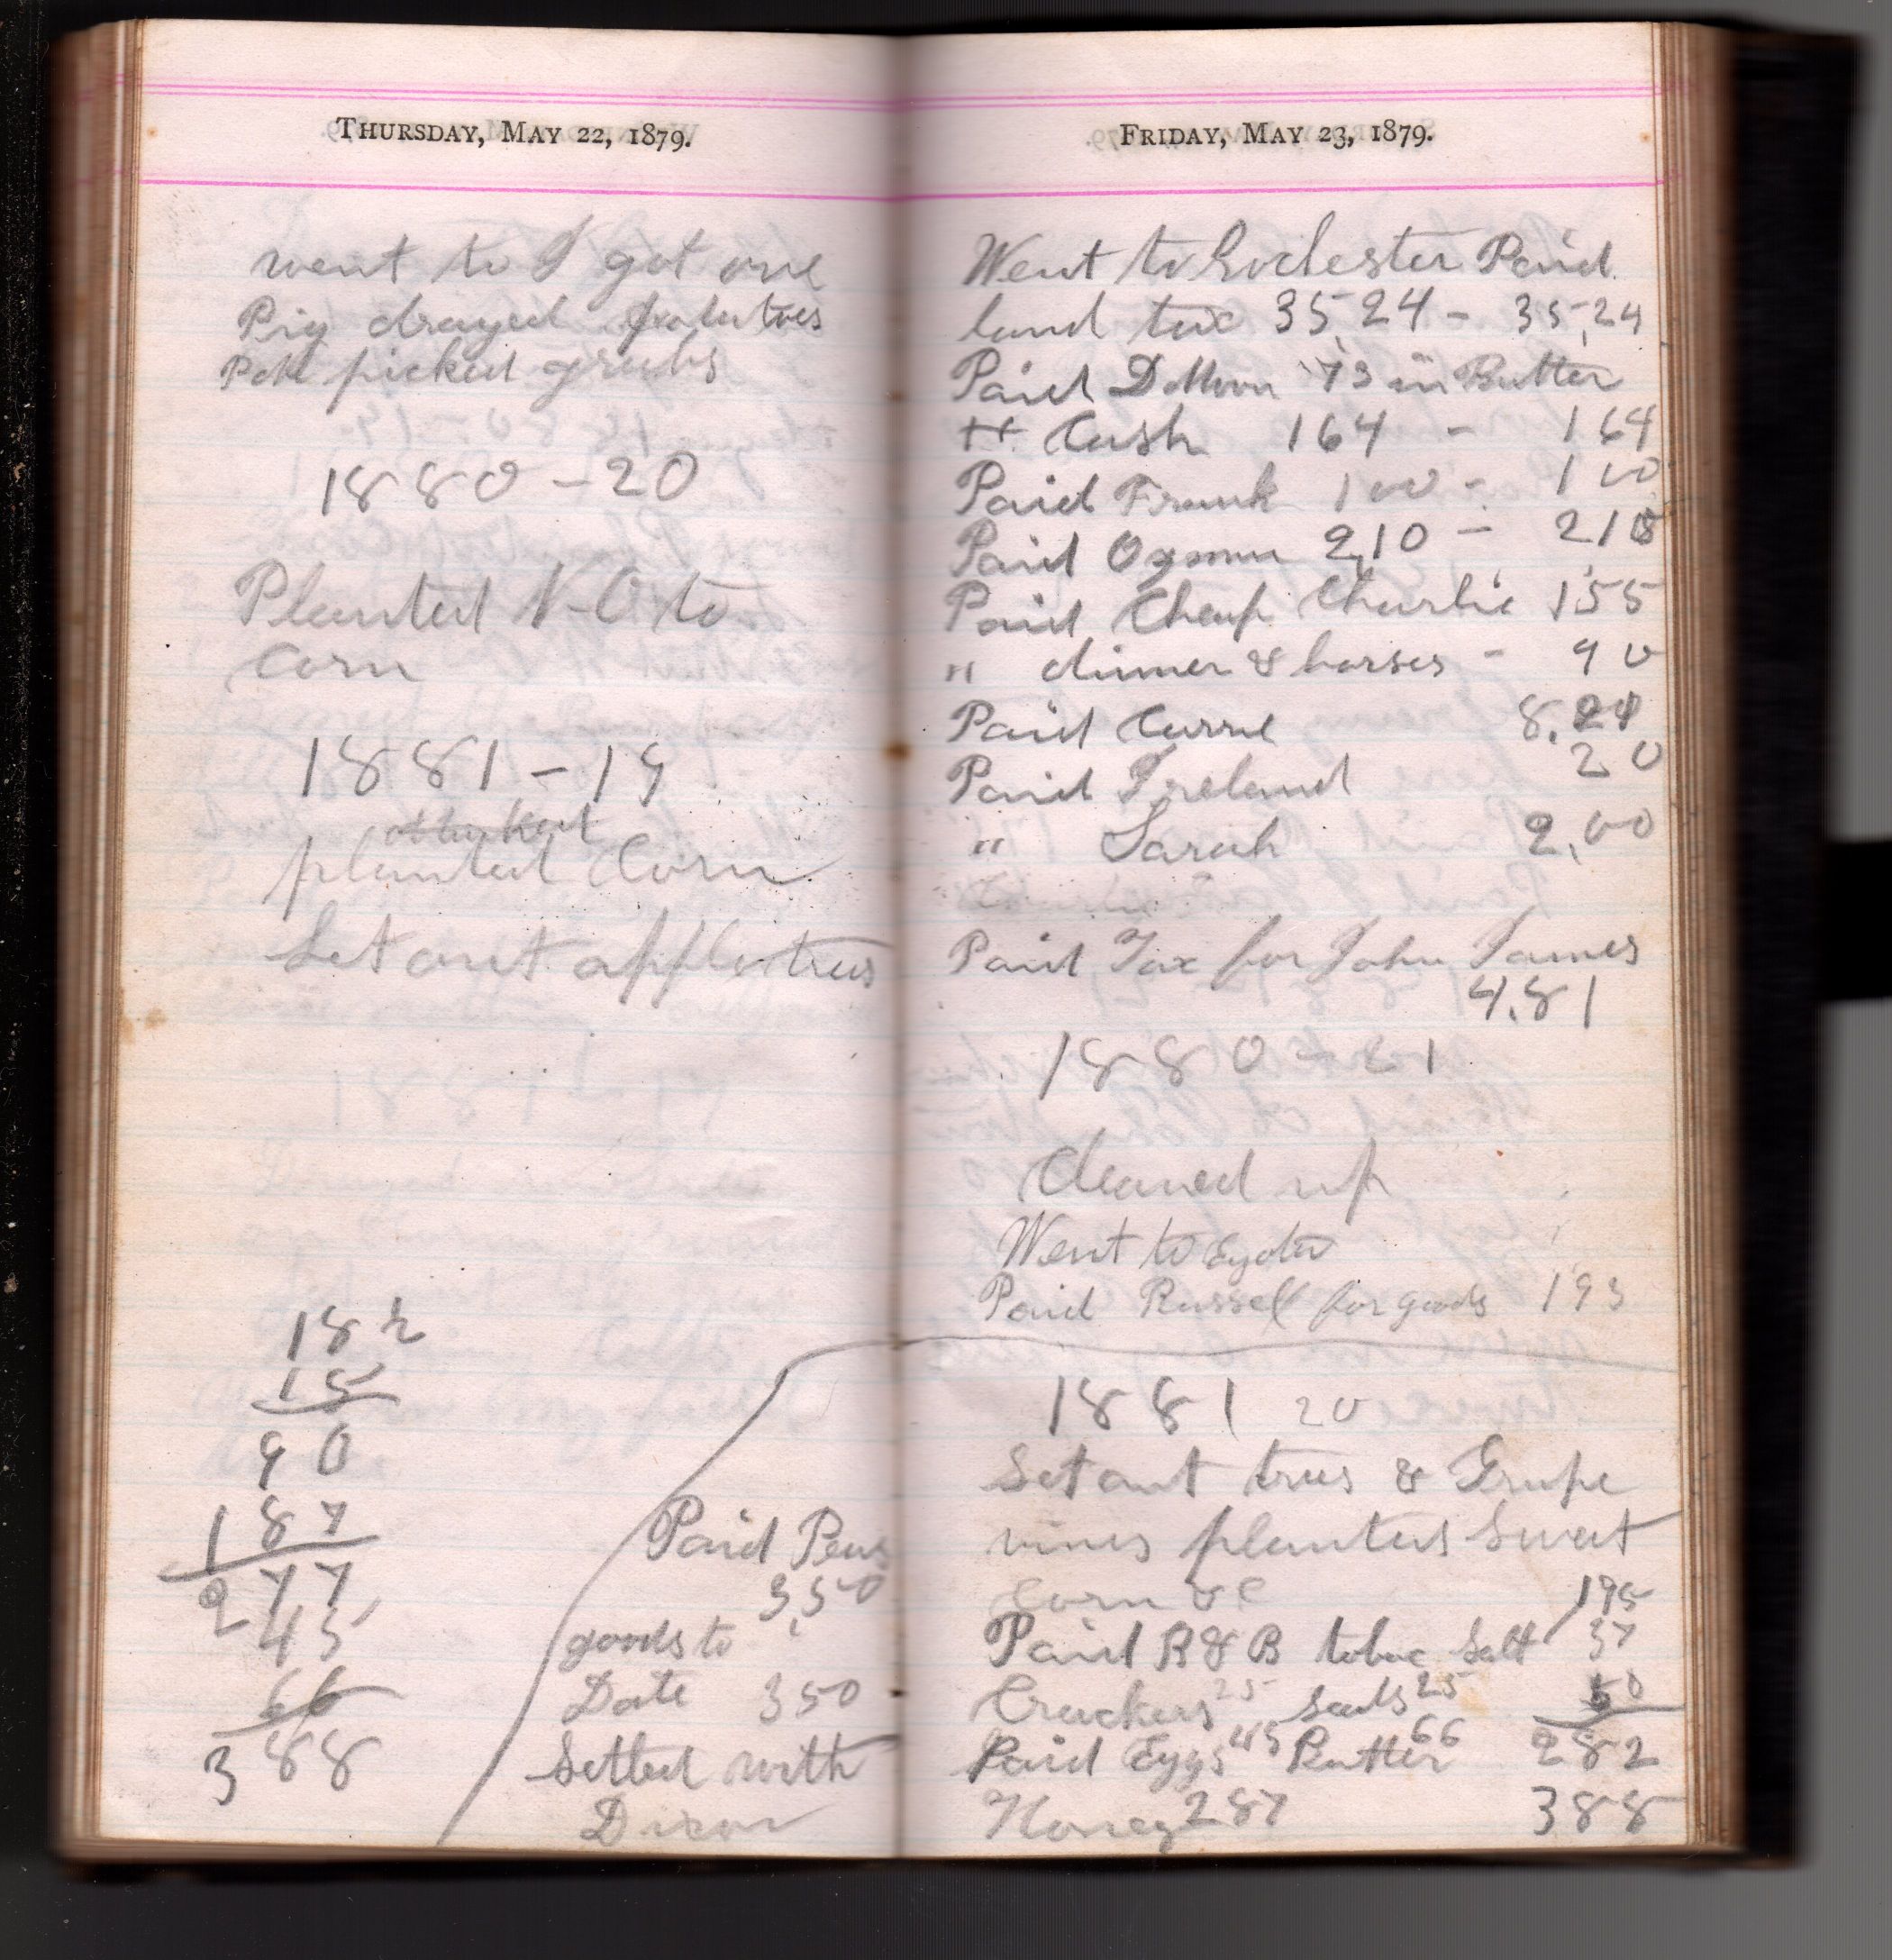 THURSDAY, MAY 22, 1879.
went to I got one
Pig draged potatoes
Pete picked grubs
1880 - 20
Planted N-O to
Corn
1881 - 19
planted Corn
Set out apple trees
182
15
90
187
277
45
66
388
Paid Peas
3,50
goods to
Date 350
Settled with
Dixon
FRIDAY, MAY 23, 1879.
Went to Rochester Paid
land tax 35,24 - 35,24
Paid 73 in Butter
Cash 164 - 164
Paid Frank 100 - 100
Paid 2,10 - 210
Paid Cheap Charlie 155
" dinner & horses - 90
Paid 8.24
Paid Ireland 20
" Sarah 2,00
Paid Tax for John James
4.81
1880 - 21
Cleaned up
Went to Eyota
Paid Russell for goods 193
1881 20
Set out trees & Grape
vines planted Sweet
Corn & C 195
Paid R & B tobac Salt 37
Crackers 25 Seeds 25 50
Paid Eggs 45 Butter 66 282
Honey 287 388